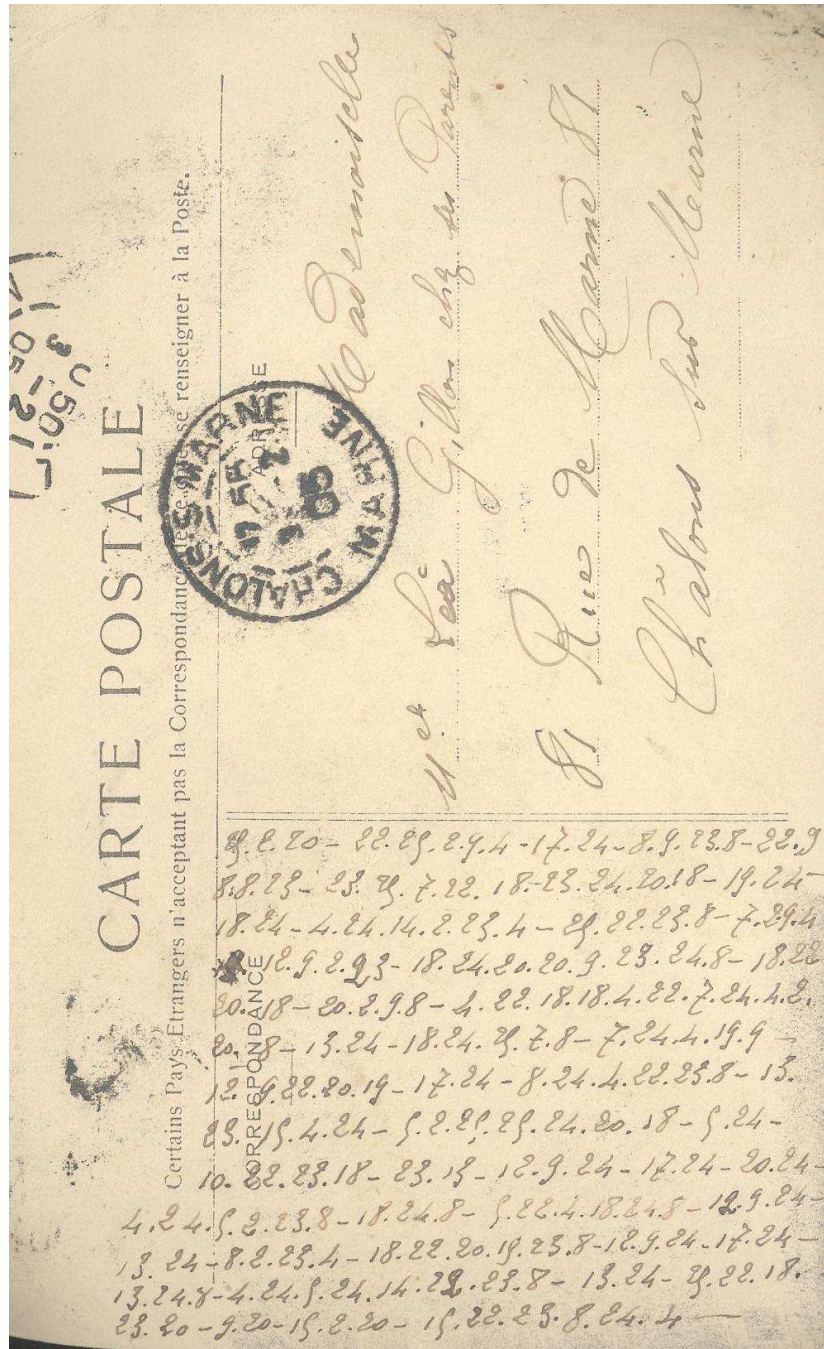 CARTE POSTALE
Certains Pays Etrangers n'acceptant pas la Correspondance se renseigner à la Poste.
CORRESPONDANCE
ADRESSE
CHALONS-S-MARNE
MARNE
05
Mademoiselle
Léa Gillon chez ses Parents
81 Rue de Marne 81
Châlons sur Marne
25.2.20 - 22.25.2.9.4 - 17.24 - 8.9.23.8 - 22.9
8.8.23 - 23.25.7.22.18 - 23.24.20.18 - 19.24 -
18.24 - 4.24.14.2.23.4 - 25.22.23.8 - 7.29.4
12.9.2.23 - 18.24.20.20.9.23.24.8 - 18.22
20.18 - 20.2.9.8 - 4.22.18.18.4.22.7.24.4.2.
20.8 - 13.24 - 18.24.25.7.8 - 7.24.4.19.9 -
12.9.22.20.19 - 17.24 - 8.24.4.22.23.8 - 13.
23.15.4.24 - 5.2.25.25.24.20.18 - 5.24 -
10.22.23.18 - 23.13 - 12.9.24 - 17.24 - 20.24 -
4.24.5.2.23.8 - 18.24.8 - 5.22.4.18.24.8 - 12.9.24 -
13.24 - 8.2.23.4 - 18.22.20.15.23.8 - 12.9.24 - 17.24 -
13.24.8 - 4.24.5.24.14.22.23.8 - 13.24 - 25.22.18.
23.20 - 9.20 - 15.2.20 - 15.22.23.8.24.4 —